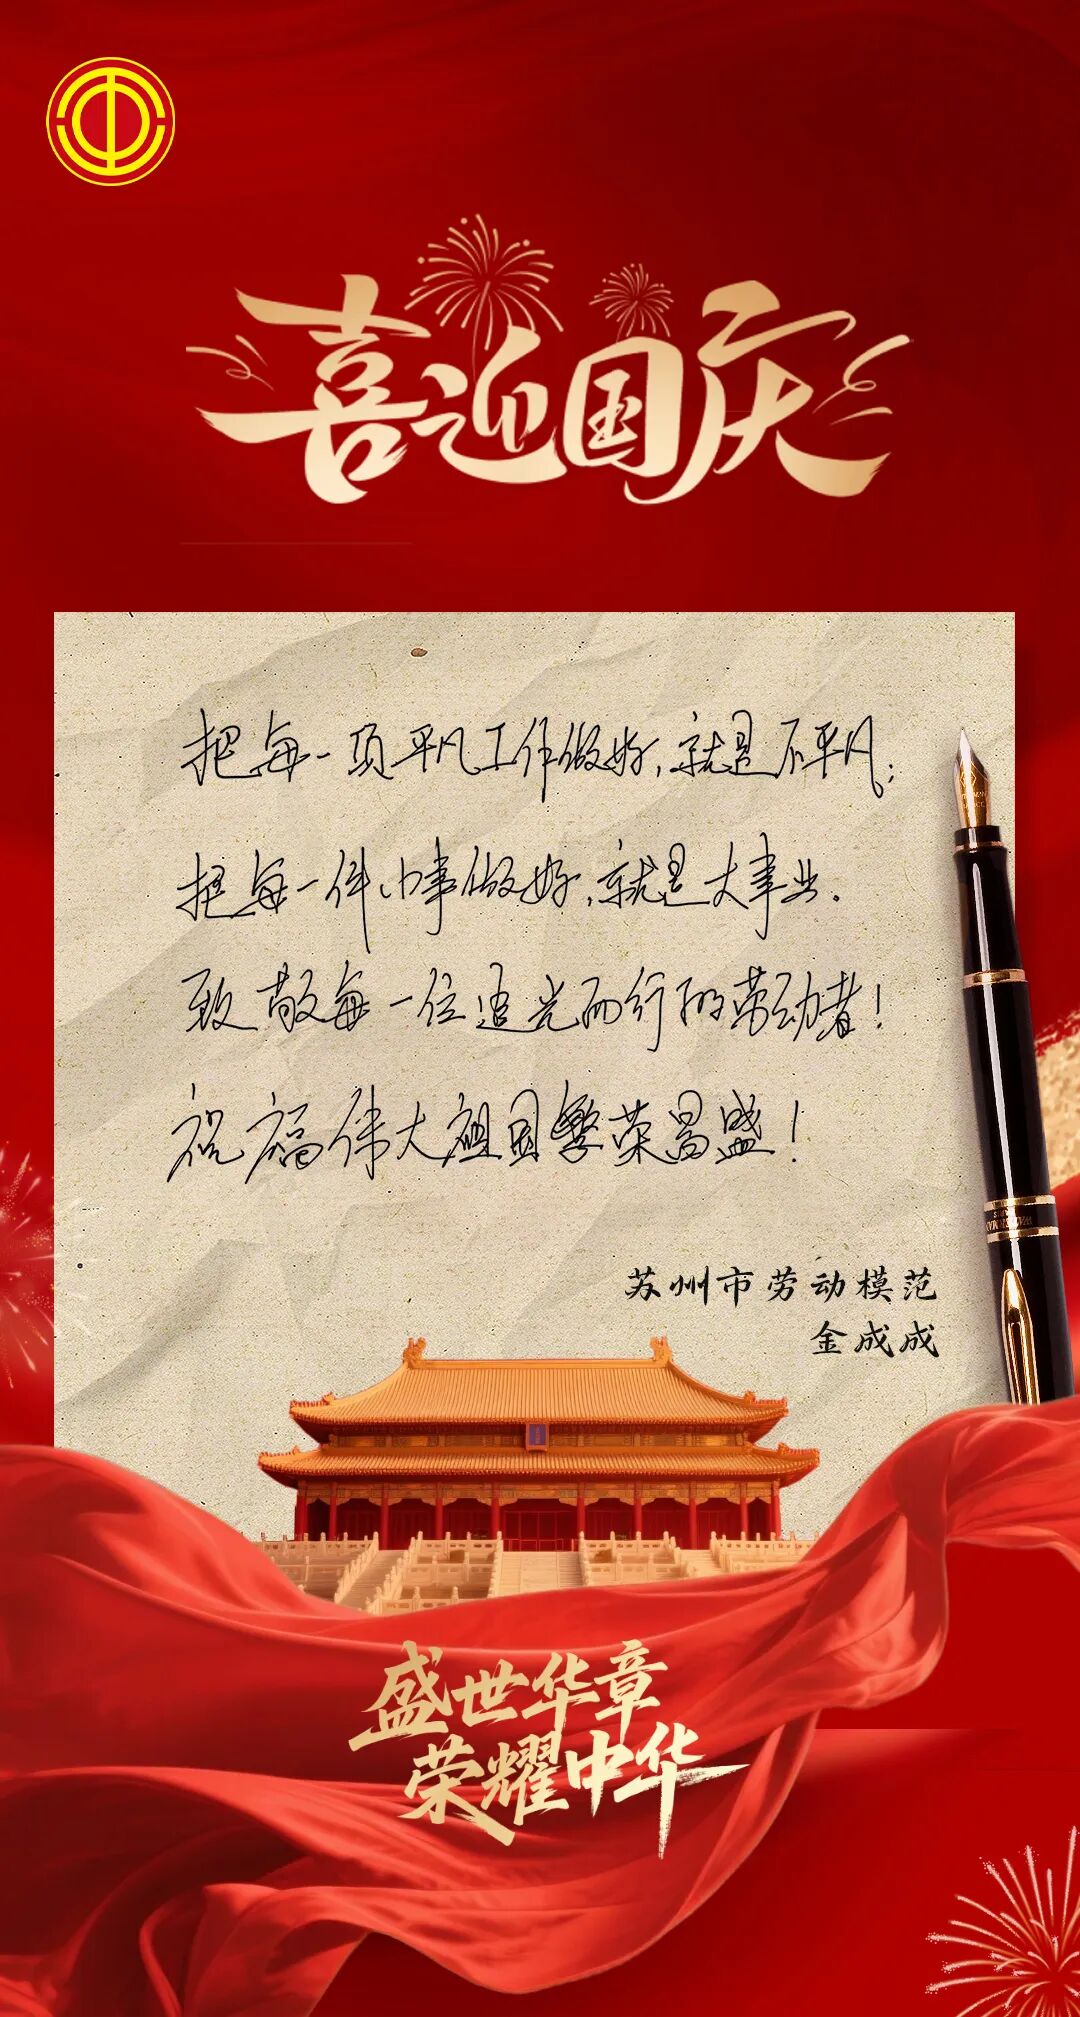 喜迎国庆
把每一项平凡工作做好,就是不平凡;
把每一件小事做好,就是大事业.
致敬每一位追光而行的劳动者!
祝福伟大祖国繁荣昌盛!
苏州市劳动模范
金成成
盛世华章
荣耀中华